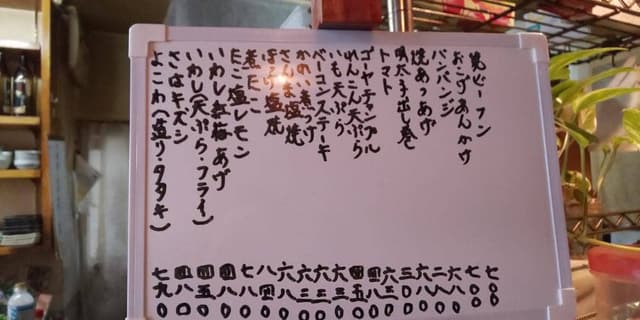 焼ビーフン 七〇〇
おこげあんかけ 七〇〇
バンバンジー 六八〇
焼あつあげ 二八〇
明太子出し巻 六八〇
トマト 三〇〇
ゴーヤチャンプル 六三〇
れんこん天ぷら 四八〇
いも天ぷら 四五〇
ベーコンステーキ 六三〇
かれい煮つけ 六三〇
さんま塩焼 六三〇
ほっけ塩焼 六八〇
煮だこ 八四〇
たこ塩レモン 七八〇
いわし紅梅あげ 四八〇
いわし(天ぷら・フライ) 四五〇
さばキズシ 四八〇
よこわ(造り・タタキ) 七九〇